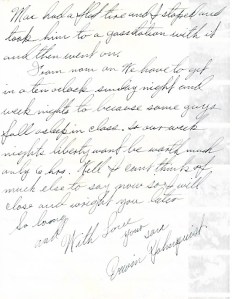 Mac had a flat tire and I stoped and
took him to a gasstation with it
and then went on.
From now on We have to get
in a ten oclock sunday night and
week nights to because some guys
fall asleep in class. So our week
nights liberty wont be worth much
only 6 hrs. Well I cant think of
much else to say now so I will
close and wright you later
So long
With Love
your son
Erwin